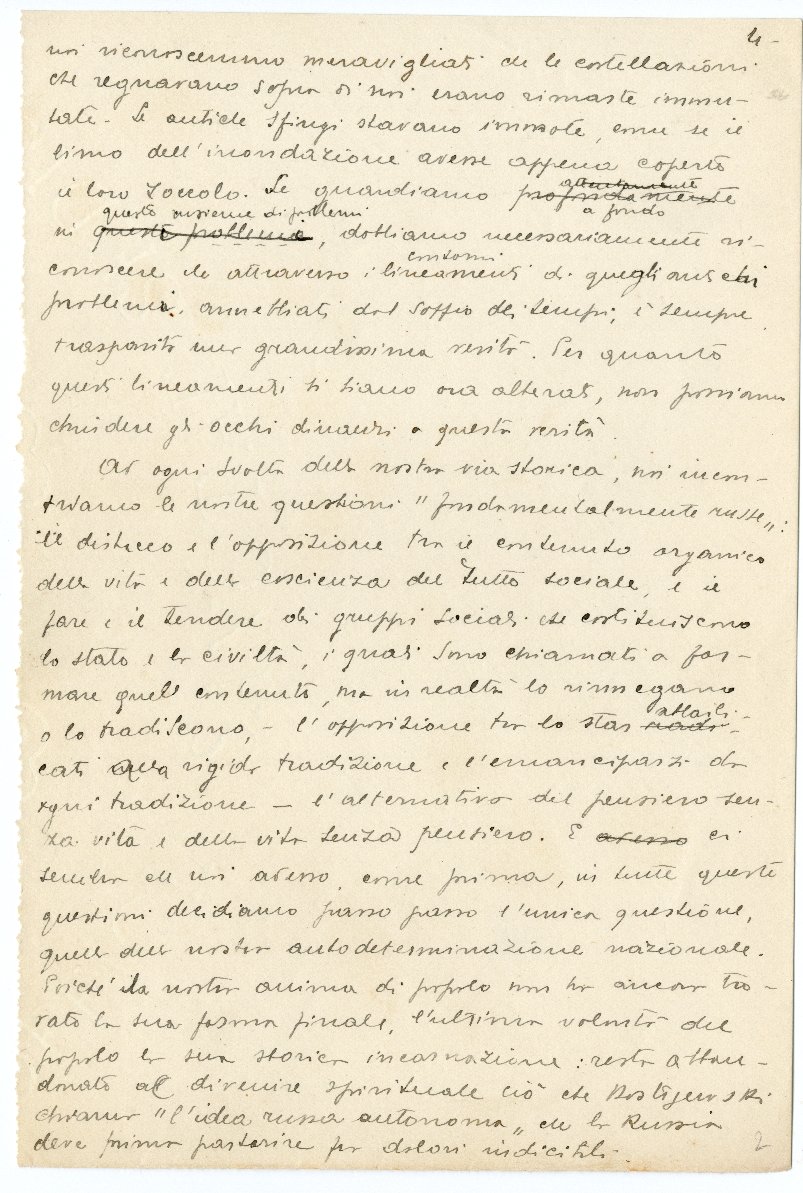 4-
noi riconoscemmo meravigliati che le costellazioni
che regnavano sopra di noi erano rimaste immu-
tate. Le antiche Sfingi stavano immote, come se il
limo dell'inondazione avesse appena coperto
il loro zoccolo. Se guardiamo profondamente attentamente a fondo
in questi problemi questo insieme di problemi, dobbiamo necessariamente ri-
conoscere che attraverso i lineamenti contorni di quegli antichi
problemi, annebbiati dal soffio dei tempi, è sempre
trasparita una grandissima verità. Per quanto
questi lineamenti si siano ora alterati, non possiamo
chiudere gli occhi dinanzi a questa verità.
Ad ogni svolta della nostra via storica, noi incon-
triamo le nostre questioni "fondamentalmente russe„:
il distacco e l'opposizione tra il contenuto organico
della vita e della coscienza del Tutto sociale, e il
fare e il tendere dei gruppi sociali che costituiscono
lo stato e la civiltà, i quali sono chiamati a for-
mare quel contenuto, ma in realtà lo rinnegano
o lo tradiscono, - l'opposizione tra lo star radi- attacli-
cati alla rigida tradizione e l'emanciparsi da
ogni tradizione — l'alternativa del pensiero sen-
za vita e della vita senza pensiero. E adesso ci
sembra che noi adesso, come prima, in tutte queste
questioni decidiamo passo passo l'unica questione,
quella della nostra autodeterminazione nazionale.
Poiché la nostra anima di popolo non ha ancora tro-
vato la sua forma finale, l'ultima volontà del
popolo la sua storica incarnazione: resta abban-
donato al divenire spirituale ciò che Dostojewski
chiama "l'idea russa autonoma„ che la Russia
deve prima partorire fra dolori indicibili.
2